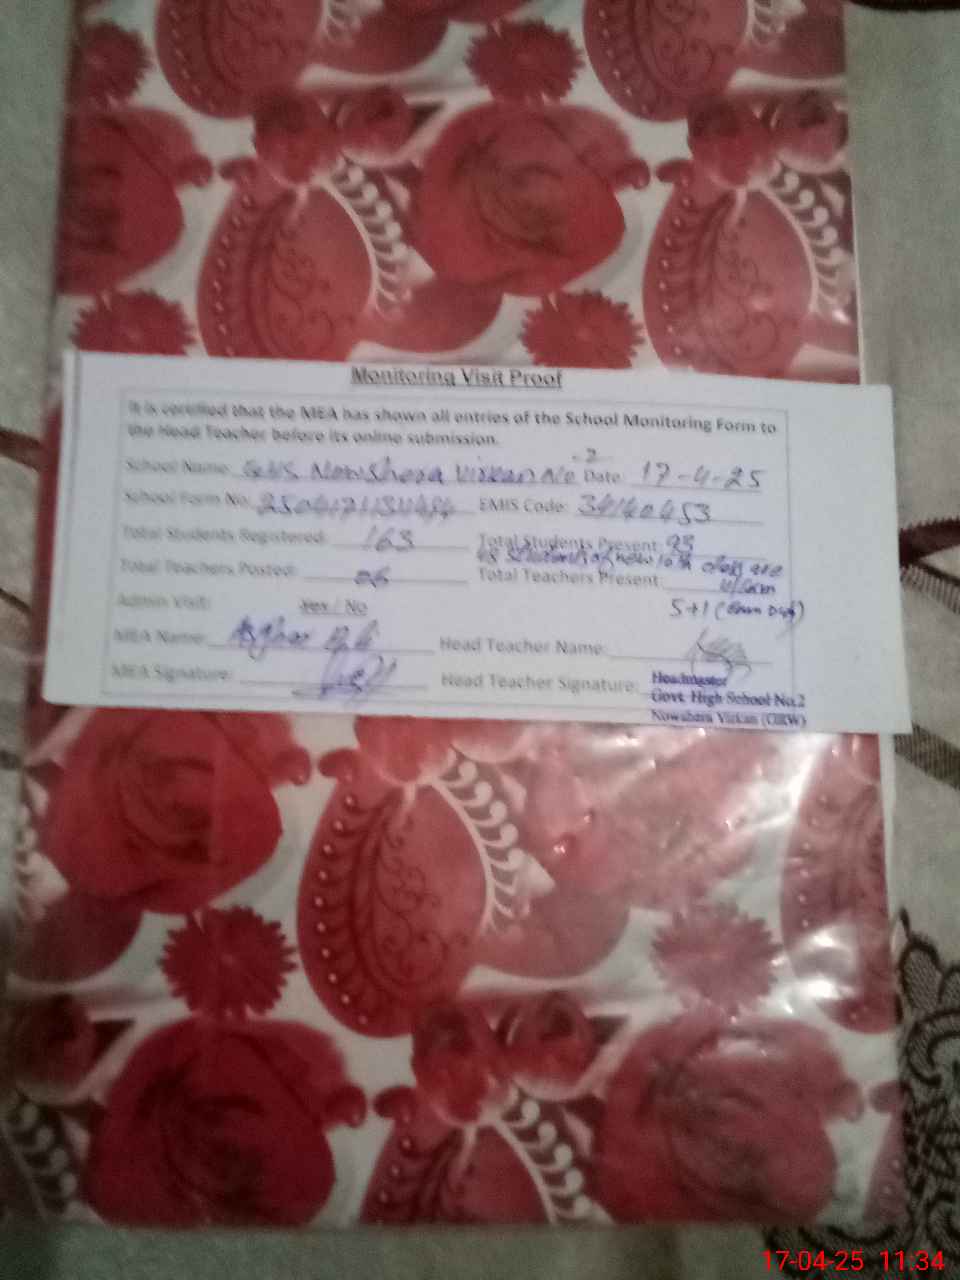 Monitoring Visit Proof
It is certified that the MEA has shown all entries of the School Monitoring Form to
the Head Teacher before its online submission.
School Name: GHS Nowshera Virkan No 2 Date: 17-4-25
School Form No: EMIS Code: 34140453
Total Students Registered: 163 Total Students Present: 93
48 students of new 10th class are
Total Teachers Posted: 06 Total Teachers Present:
5+1 (Exam Duty)
Admin Visit: Yes / No
MEA Name: Asghar Ali Head Teacher Name:
MEA Signature: Head Teacher Signature:
Headmaster
Govt. High School No.2
Nowshera Virkan (GRW)
17-04-25 11:34